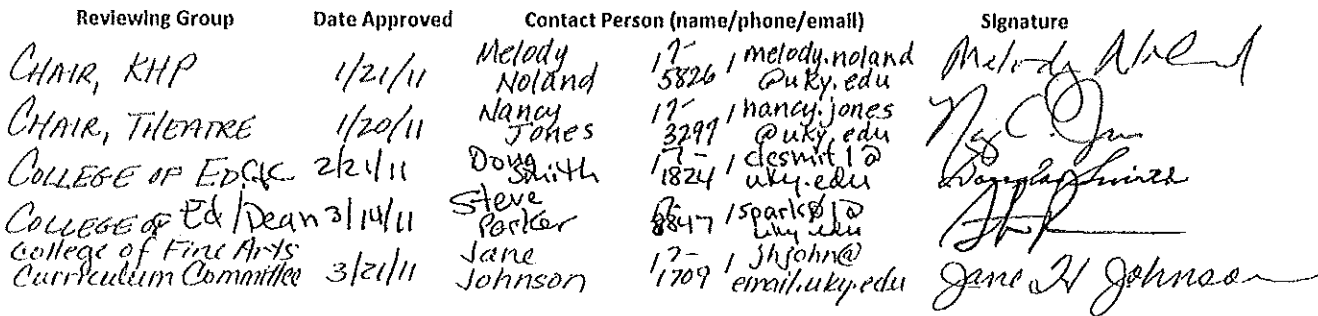 Reviewing Group Date Approved Contact Person (name/phone/email) Signature
CHAIR, KHP 1/21/11 Melody Noland / 7-5826 / melody.noland@uky.edu Melody Noland
CHAIR, THEATRE 1/20/11 Nancy Jones / 7-3297 / nancy.jones@uky.edu
COLLEGE OF ED 2/21/11 Doug Smith / 7-1824 / desmit1@uky.edu Douglas Smith
COLLEGE OF Ed/Dean 3/14/11 Steve Parker / 7-8847 / uky.edu
College of Fine Arts
Curriculum Committee 3/21/11 Jane Johnson / 7-1709 / jhjohn@email.uky.edu Jane H Johnson